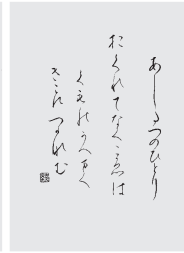 あしたづのひとり
おくれてなく声は
くものうへまで
きこえつがなむ